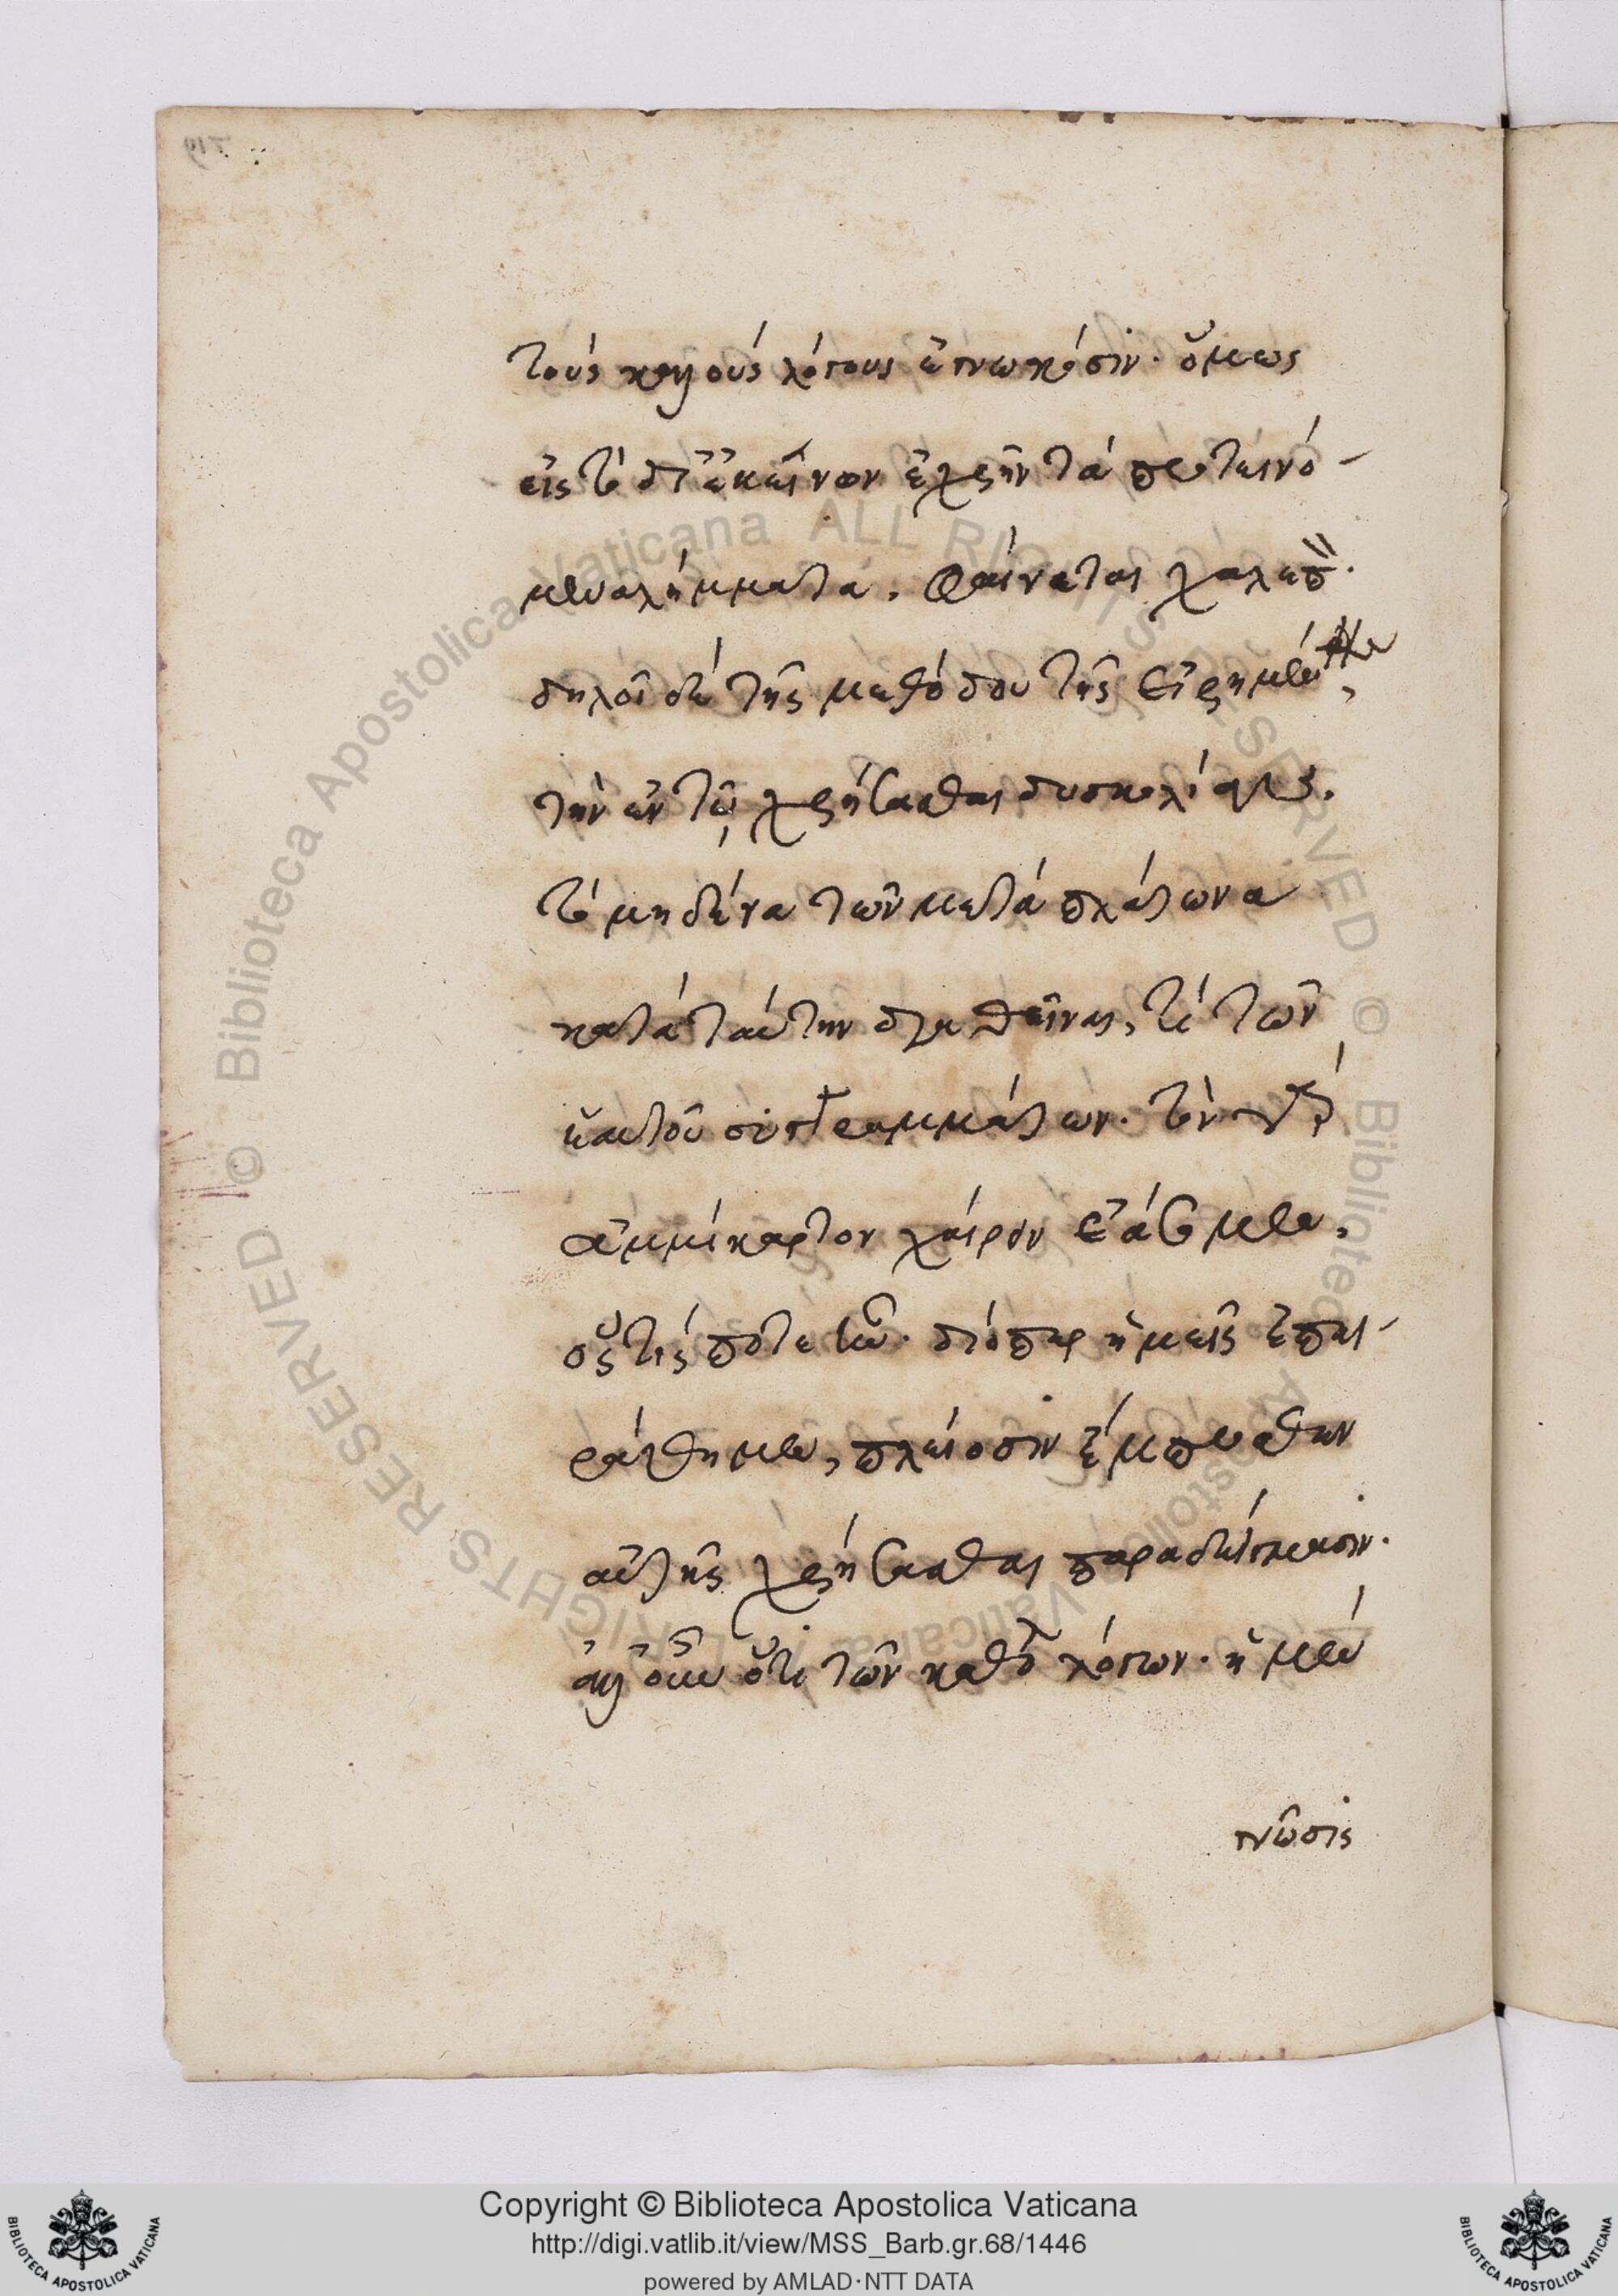 τοὺς καινοὺς λόγους ἐγνωκόσιν· ὅμως
εἰς τὸ δι' ἐκείνων εὑρεῖν τὰ προτεινό-
μενα λήμματα, φαίνεται χαλεπ.
δηλοῖ δὲ τῆς μεθόδου τῆς εἰρημένης,
τὴν ἐν τῷ χρήσασθαι δυσκολίαν.
τὸ μηδένα τῶν μετὰ πλάτωνα
κατὰ ταύτην διαθεῖναι, τι τῶν
ἑαυτοῦ συγγραμμάτων. τὸν γὰρ
ἀμμίκαρτον χαίρειν ἐάσομεν,
ὅς τίς ποτε ἦν. διόπερ ἡμεῖς ἐπει-
ράθημεν, πλείοσιν ἔμπροσθεν
αὐτῆς χρήσασθαι παραδείγμασιν.
οὖν ὅτι τῶν καθόλου λόγων. ἡ μὲν
γνῶσις
Copyright © Biblioteca Apostolica Vaticana
http://digi.vatlib.it/view/MSS_Barb.gr.68/1446
powered by AMLAD·NTT DATA
BIBLIOTECA APOSTOLICA VATICANA
BIBLIOTECA APOSTOLICA VATICANA
© Biblioteca Apostolica Vaticana ALL RIGHTS RESERVED © Biblioteca Apostolica Vaticana ALL RIGHTS RESERVED